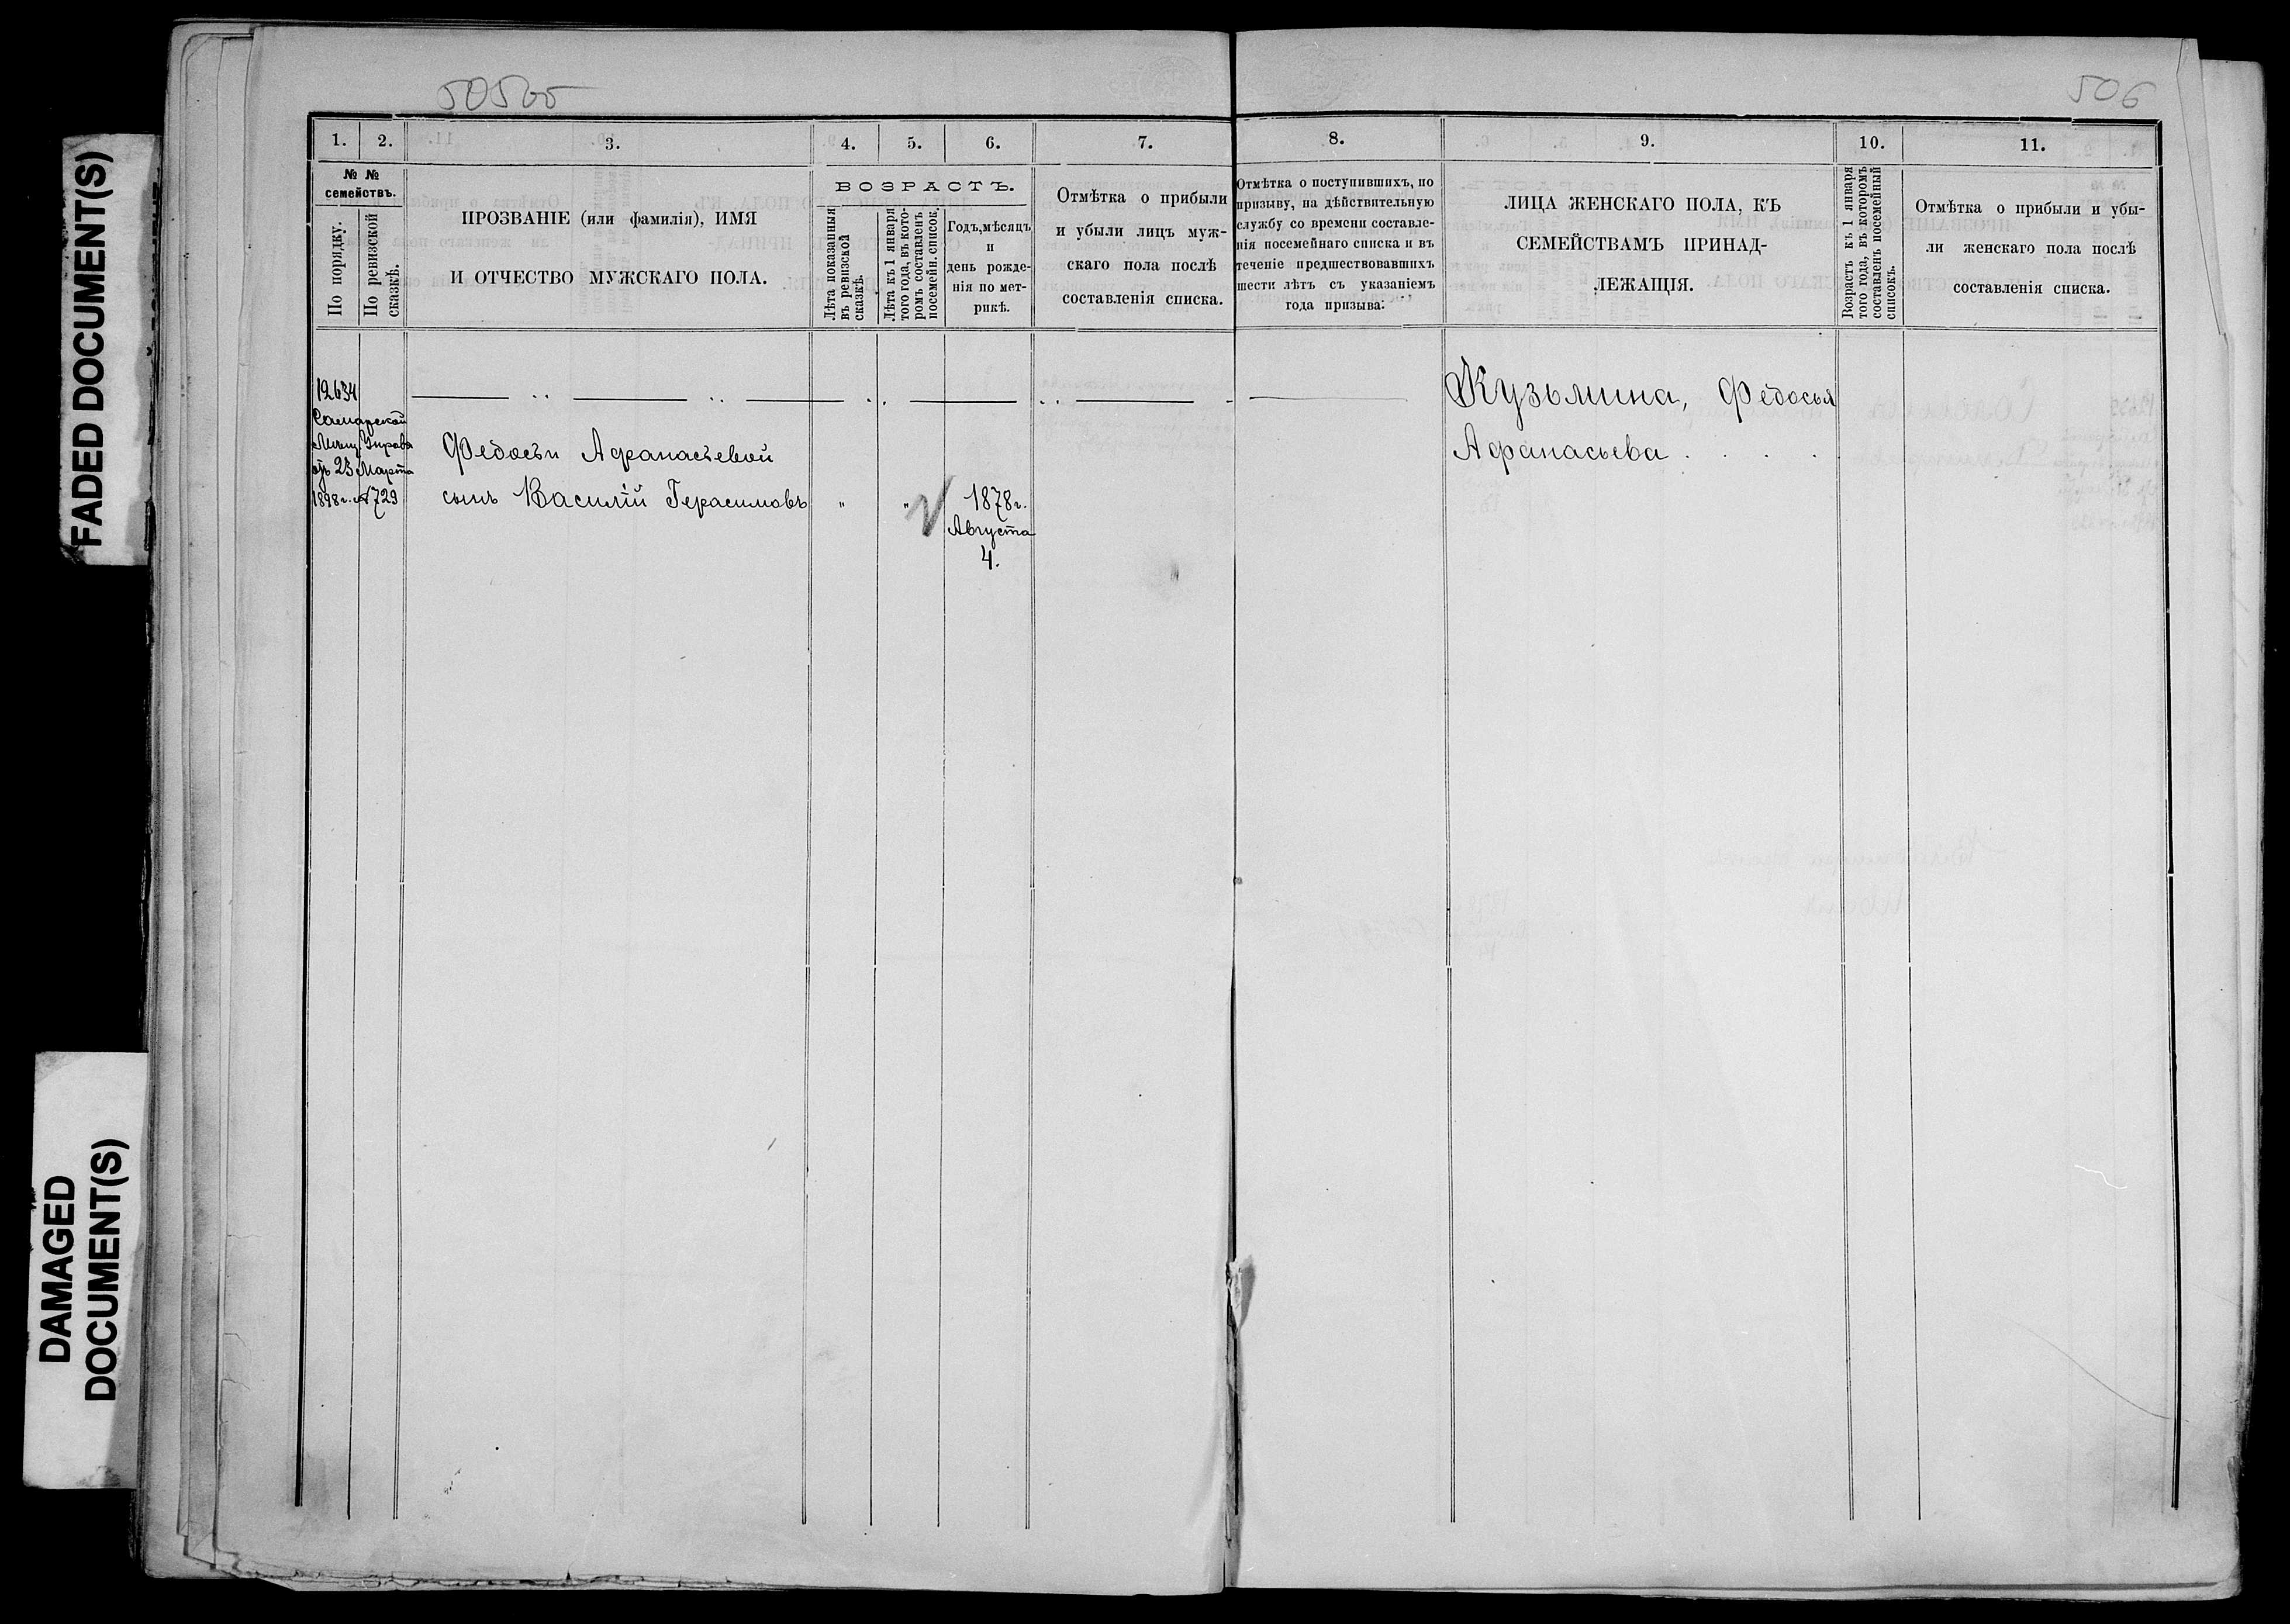 FADED DOCUMENT(S)
DAMAGED
DOCUMENT(S)
506
1.
2.
3.
4.
5.
6.
7.
8.
9.
10.
11.
№ №
семействъ.
По порядку.
По ревизской
сказкѣ.
ПРОЗВАНІЕ (или фамилія), ИМЯ
И ОТЧЕСТВО МУЖСКАГО ПОЛА.
ВОЗРАСТЪ.
Лѣта показанныя
въ ревизской
сказкѣ.
Лѣта къ 1 января
того года, въ кото-
ромъ составленъ
посемейн. список.
Годъ, мѣсяцъ
и
день рожде-
нія по мет-
рикѣ.
Отмѣтка о прибыли
и убыли лицъ муж-
скаго пола послѣ
составленія списка.
Отмѣтка о поступившихъ, по
призыву, на дѣйствительную
службу со времени составле-
нія посемейнаго списка и въ
теченіе предшествовавшихъ
шести лѣтъ съ указаніемъ
года призыва.
ЛИЦА ЖЕНСКАГО ПОЛА, КЪ
СЕМЕЙСТВАМЪ ПРИНАД-
ЛЕЖАЩІЯ.
Возрастъ къ 1 января
того года, въ которомъ
составленъ посемейный
списокъ.
Отмѣтка о прибыли и убы-
ли женскаго пола послѣ
составленія списка.
12634
Самарской
Мѣщ. Управы
отъ 23 Марта
1898 г. № 729
Федосьи Афанасьевой
сынъ Василій Герасимовъ " "
1878 г.
Августа
4.
Кузьмина, Федосья
Афанасьева . . . .